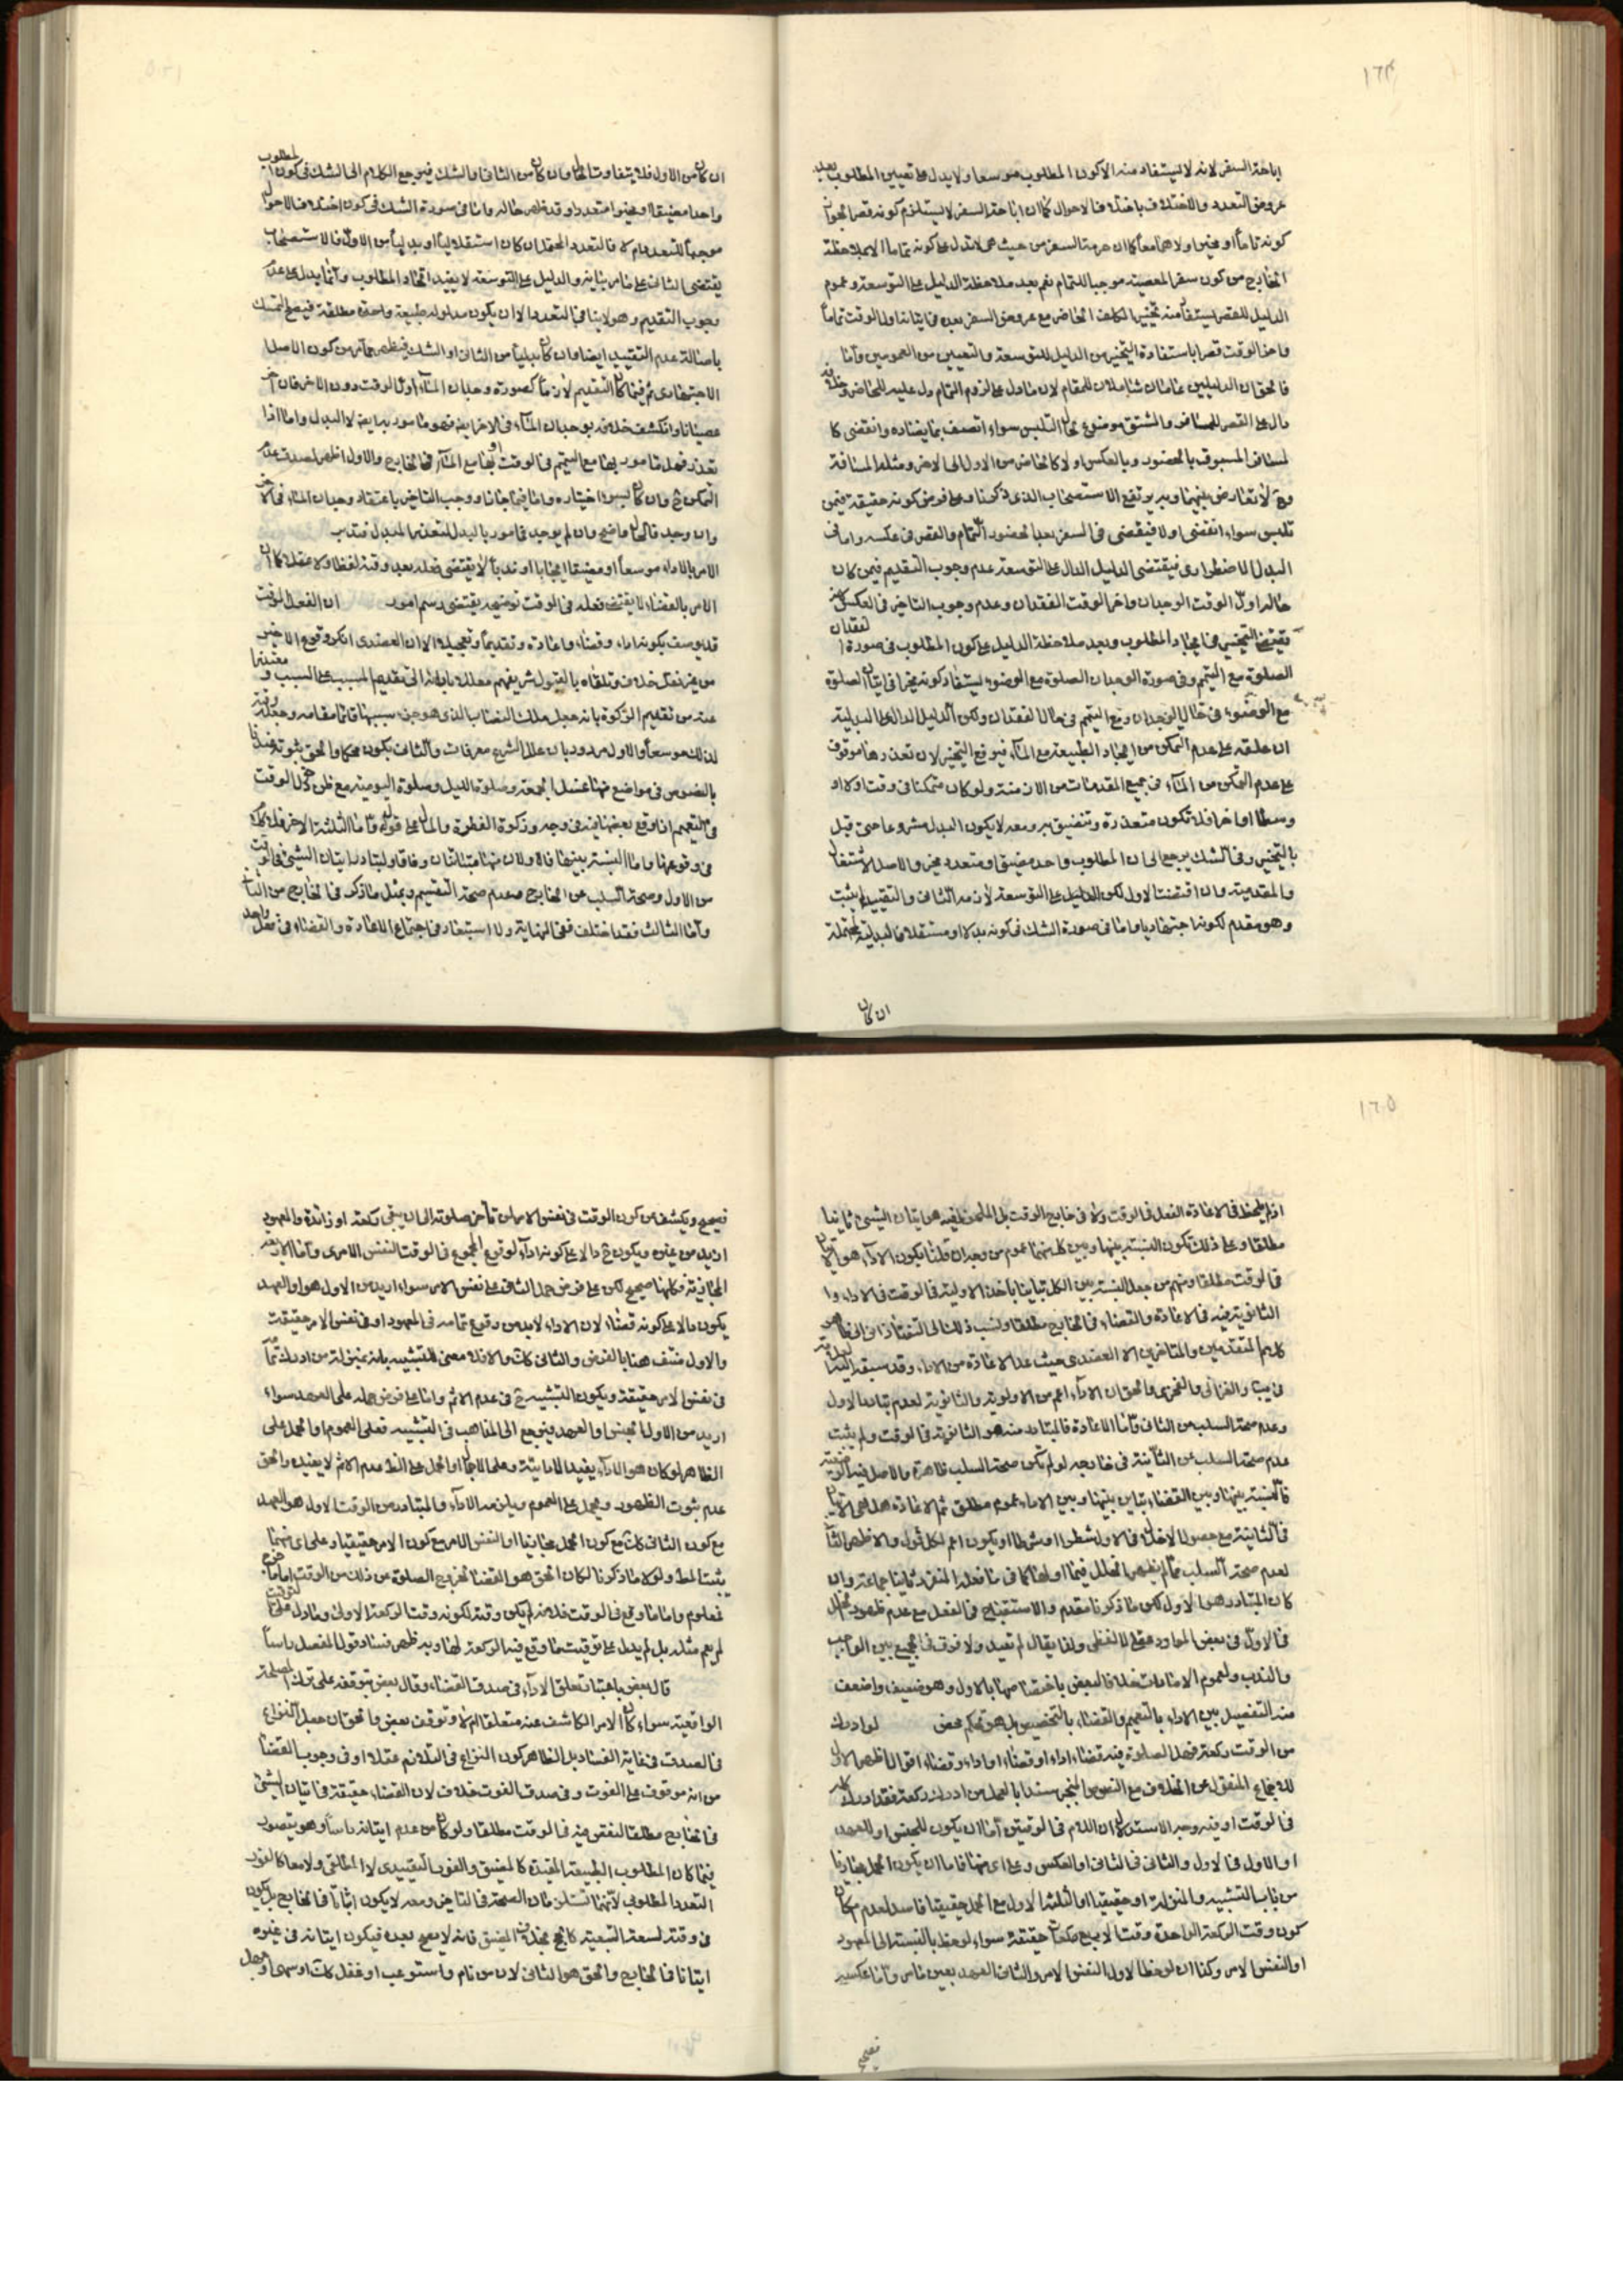 ١٦٤
اباحة السفر لانه لا يستفاد منه الا كون المطلوب موسعا ولا يدل على تعيين المطلوب بعد
عروض التعدد والاختلاف باختلاف الاحوال كما ان اباحة السفر لا يستلزم كونه قصرا لجواز
كونه تماما او مخيرا ولاهما معا كما ان حرمة السفر من حيث هى لا تدل على كونه تماما الا بملاحظة
الخارج من كون سفر المعصية موجبا للتمام نعم بعد ملاحظة الدليل على التوسعة وعموم
الدليل للقصر يستفاد منه تخيير المكلف الحاضر مع عروض السفر بعده فى اتيانه اول الوقت تماما
واخر الوقت قصرا باستفادة التخيير من الدليل للتوسعة والتعيين من العمومين واما
فالحق ان الدليلين عامان شاملان للمقام لان ما دل على لزوم التمام دل عليه للحاضر وخلافه
دال على القصر للمسافر والمشتق موضوع لحال التلبس سواء اتصف بما يضاده وانقضى كا
لمسافر المسبوق بالحضور وبالعكس اولا كالحاضر من الاول الى الاخر ومثله المسافة
وح لا تعارض بينهما وبه يرتفع الاستصحاب الذى ذكرنا وعلى فرض كونه حقيقة فيمن
تلبس سواء انقضى اولا فيقتضى فى السفر بعد الحضور التمام والقصر فى عكسه واما فى
البدل الاضطرارى فيقتضى الدليل الدال على التوسعة عدم وجوب التقديم فيمن كان
حاله اول الوقت الوجدان واخر الوقت الفقدان وعدم وجوب التاخير فى العكس
يقتضى التخيير فى ايجاد المطلوب وبعد ملاحظة الدليل على كون المطلوب فى صورة الفقدان
الصلوة مع التيمم وفى صورة الوجدان الصلوة مع الوضوء يستفاد كونه مخيرا فى اتيان الصلوة
مع الوضوء فى حال الوجدان ومع التيمم فى حال الفقدان ولكن الدليل الدال على البدلية
ان علقه على عدم التمكن من ايجاد الطبيعة مع الماء فيرفع التخيير لان تعذرها موقوف
على عدم التمكن من الماء فى جميع المقدمات من الازمنة ولو كان متمكنا فى وقت اولا او
وسطا او اخرا فلا تكون متعذرة وتنضيق به ومعه لا يكون البدل مشروعا حتى قيل
بالتخيير وفى الشك يرجع الى ان المطلوب واحد مضيق او متعدد مخير والاصل الاشتغال
والمقدمية وان اقتضت الاول لكن الدليل على التوسعة لازمه الثانى والتقييد لم يثبت
وهو مقدم لكونه اجتهاديا واما فى صورة الشك فى كونه بدلا او مستقلا فالبدلية محتملة
ان كان
ان كان من الاول فلا يتفاوت الحال وان كان من الثانى او الشك فيرجع الكلام الى الشك فى كون المطلوب
واحدا مضيقا او مخيرا متعددا وقد ظهر حاله واما فى صورة الشك فى كون اختلاف الاحوال
موجبا للتعدد ام لا فالتعدد المحقق ان كان استقلاليا او بدليا من الاول فالاستصحاب
يقتضى الثانى على ما مر بيانه والدليل على التوسعة لا يفيد اتحاد المطلوب وانما يدل على عدم
وجوب التقديم وهو لا ينافى التعدد الا ان يكون مدلوله طبيعة واحدة مطلقة فيصح التمسك
باصالة عدم التقييد ايضا وان كان بدليا من الثانى او الشك فيظهر مما مر من كون الاصل
الاجتهادى ثم فيما كان التقديم لازما كصورة وجدان الماء اول الوقت دون الاخر فان اخر
عصيانا وانكشف خلافه بوجدان الماء فى الاخر ايضا فهو مامور به ايضا لا البدل واما اذا
تعذر فهل مامور بها مع التيمم فى الوقت او بها مع الماء فى الخارج والاول اظهر لصدق عدم
التمكن ح وان كان بسوء اختياره واما فيما جاز او وجب التاخير باعتقاد وجدان الماء فى الاخر
وان وجد فالحال واضح وان لم يوجد فمامور بالبدل لتعذر المبدل فتدبر
الامر بالاداء موسعا او مضيقا ايجابا او ندبا لا يقتضى فعله بعد وقته لفظا ولا عقلا كما ان
الامر بالقضاء لا يقتضى فعله فى الوقت توضيحه يقتضى رسم امور ان الفعل الموقت
قد يوصف بكونه اداء وقضاء واعادة وتقديما وتعجيلا الا ان العضدى انكر وقوع الاخير
من غير نقل خلاف وتلقاه بالقبول شريفهم معللا بابطال تقديم المسبب على السبب ومعتذرا
عنه من تقديم الزكوة بانه جعل ملك النصاب الذى هو جزء سببها قائما مقامه وجعل وقته
لذلك موسعا والاول مردود بان علل الشرع معرفات والثانى يكون محكما والحق ثبوته
بالنصوص فى مواضع منها غسل الجمعة وصلوة الليل وصلوة اليومية مع ظن دخول الوقت
من الاول وصحة السلب عن الخارج وعدم صحة التقسيم وبمثل ما ذكر فى الخارج من الثانى
واما الثالث فقد اختلف ففى النهاية ولا استبعاد فى اجتماع الاعادة والقضاء فى فعل واحد
١٦٥
اذ لم يلحظ فى الاعادة الفعل فى الوقت ولا فى خارج الوقت بل الملحوظ فيه هو اتيان الشىء ثانيا
مطلقا وعلى ذلك تكون النسبة بينها وبين كل منهما عموم من وجه ان قلنا يكون الاداء هو الاتيان
فى الوقت مطلقا ومنهم من جعل النسبة بين الكل تباينا باخذ الاولية فى الوقت فى الاداء وا
الثانوية فيه فى الاعادة والقضاء فى الخارج مطلقا ونسب ذلك الى التفتازانى الى ظاهر
كلام المتقدمين والمتاخرين الا العضدى حيث عد الاعادة من الاداء وقد سبقه اليه
والغزالى والفخرى والحق ان الاداء اعم من الاولوية والثانوية لعدم تبادر الاول
وعدم صحة السلب عن الثانى واما الاعادة فالمتبادر منه هو الثانوية فى الوقت ولم يثبت
عدم صحة السلب عن الثانية فى خارجه لو لم تكن صحة السلب ظاهرة والاصل فيه
فالنسبة بينها وبين القضاء تباين وبينها وبين الاداء عموم مطلق ثم الاعادة هل هى الاتيان
فى الثانية مع حصول الاخلال فى الاول شطرا او شرطا او يكون اعم لكل قول والاظهر الثانى
لعدم صحة السلب عما لم يظهر الخلل فيما اوله كما فى ما فعله المنفرد ثانيا جماعة وان
كان المتبادر هو الاول لكن ما ذكرنا مقدم والاستقباح فى الفعل مع عدم ظهور الخلل
فى الاول فى بعض الموارد عقلى لا لفظى ولذا يقال لم تعيد ولا فرق فى الجميع بين الواجب
والندب ولعموم الامارات خلافا لبعض باختصاصها بالاول وهو ضعيف واضعف
منه التفصيل بين الاداء بالتعميم والقضاء بالتخصيص بل هو تحكم محض لو ادرك
من الوقت ركعة فهل الصلوة فيه قضاء او اداء او قضاء او اداء وقضاء اقوال اظهرها الاول
للاجماع المنقول عن الخلاف مع النصوص المنجبر سندا بالعمل من ادرك ركعة فقد ادرك كله
فى الوقت او فيه وجه الاستدلال ان اللام فى الوقتين اما ان يكون للجنس او للعهد
او الاول فى الاول والثانى فى الثانى او العكس وعلى اى منها فاما ان يكون الحمل مجازيا
من باب التشبيه والمنزلة او حقيقيا والثلثة الاول مع الحمل حقيقيا فاسد لعدم امكان
كون وقت الركعة الواحدة وقتا لاربع ركعات حقيقة سواء لوحظ بالنسبة الى المعهود
او النفس الامر وكذا ان لوحظ الاول النفس الامر والثانى العهد بعين ما مر واما عكسه
فصحيح
فصحيح ويكشف عن كون الوقت فى نفس الامر لمن تاخر صلوته الى ان يبقى ركعة او زائدة والمعهود
ازيد من غيره ويكون ح دالا على كونه اداء لوقوع المجموع فى الوقت النفس الامرى واما الاربعة
المجازية فكلها صحيح لكن على فرض حمل الثانى على نفس الامر سواء اريد من الاول هو او العهد
يكون دالا على كونه قضاء لان الاداء لابد من وقوع تمامه فى المعهود او فى نفس الامر حقيقة
والاول منتف هنا بالفرض والثانى كذلك والا فلا معنى للتشبيه بانه بمنزلة من ادرك تماما
فى نفس الامر حقيقة ويكون التشبيه ح فى عدم الاثم واما على فرض حمله على العهد سواء
اريد من الاول الجنس او العهد فيرجع الى المذاهب فى التشبيه فعلى العموم او الحمل على
الظاهر لو كان هو الاداء يفيد الادائية وعلى الاجمال او الحمل على عدم الاثم لا يفيده والحق
عدم ثبوت الظهور ويحمل على العموم ويلزمه الاداء والمتبادر من الوقت الاول هو العهد
مع كون الثانى كذلك مع كون الحمل مجازيا او النفس الامر مع كون الامر حقيقيا وعلى اى منهما
يثبت المط ولولا ما ذكرنا لكان الحق هو القضاء لخروج الصلوة عن ذلك من الوقت اما ما خرج
فمعلوم واما ما وقع فى الوقت فلانه لم يكن وقته لكونه وقت الركعة الاولى وما دل على التوقيت
لم يعم مثله بل لم يدل على توقيت ما وقع فيه الركعة لها وبه ظهر فساد قول المفصل راسا
قال بعض باعتبار تعلق الاداء فى صدق القضاء وقال بعض بتوقفه على ترك المصلحة
الواقعية سواء كان الامر الكاشف عنه متعلقا ام لا وتوقف بعض والحق ان جعل النزاع
فى الصدق فى غاية الفساد بل الظاهر كون النزاع فى التلازم عقلا او فى وجوب القضاء
من انه موقوف على الفوت وفى صدق الفوت خلاف لان القضاء حقيقة فى اتيان الشىء
فى الخارج مطلقا لنقص فيه فى الوقت مطلقا ولو كان من عدم اتيانه راسا وهو يتصور
فيما كان المطلوب الطبيعة المقيدة كالمضيق والفور التقييدى لا المطلق ولا معا كالفور
التعدد المطلوبى لانهما تستلزمان الصحة فى التاخير ومعه لا يكون اتيانا فى الخارج بل يكون
فى وقته لسعة التبعية كالحج بخلاف المضيق فانه لا يصح بعده فيكون اتيانه فى غيره
اتيانا فى الخارج والحق هو الثانى لان من نام واستوعب او غفل كذلك او سهى او جهل